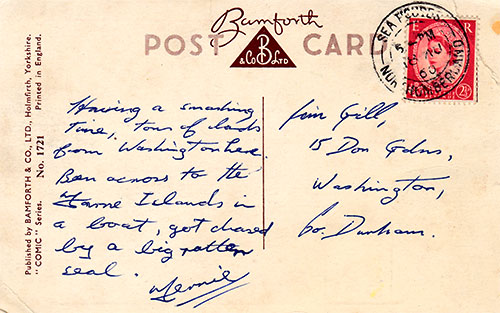 Bamforth
POST CARD
B
& Co LTD
SEA HOUSES
5 - PM
NORTHUMBERLAND
E R
2½
Published by BAMFORTH & CO., LTD., Holmfirth, Yorkshire.
"COMIC" Series. No. 1721 Printed in England.
Having a smashing
time, tons of lads
from Washington here.
Been across to the
Farne Islands in
a boat, got chased
by a big rotten
seal.
Jim Gill,
15 Don Gdns,
Washington,
Co. Durham.